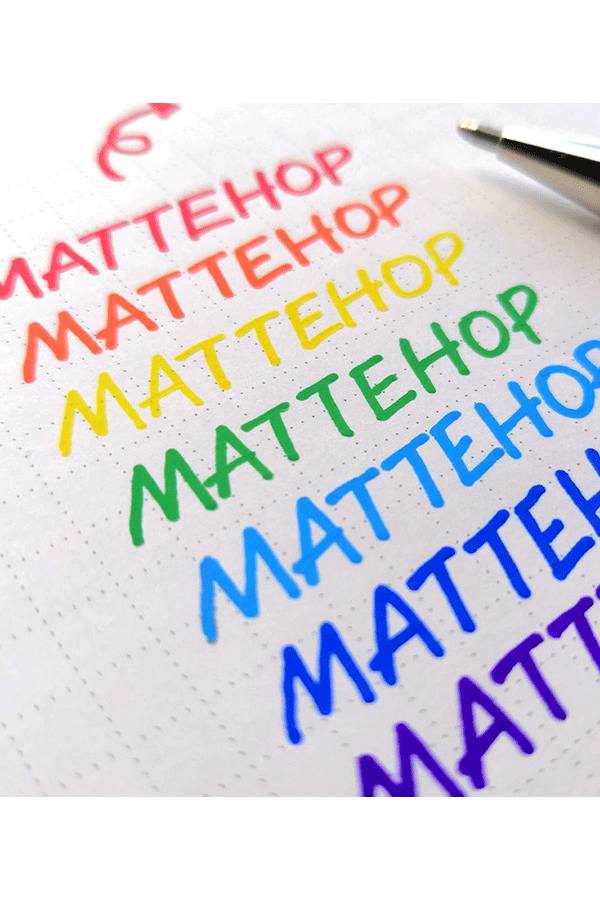 MATTEHOP
MATTEHOP
MATTEHOP
MATTEHOP
MATTEHOP
MATTEH
MATT